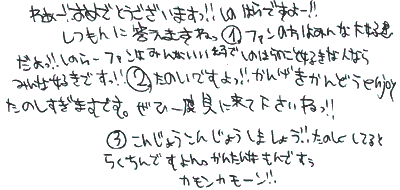 わぁ〜おめでとうございます!! しのはらですよー!!
しつもんに答えますねっ ① ファンの方はみんな大好き
だよっ!! しのらーファンはみんないい
しのはらのこと好きな人なら
みんな好きですっ!! ② たのしいですよっ!! かんげきかんどうenjoy
たのしすぎますです。ぜひ一度見に来て下さいねっ!!
③ こんじょうこんじょうしましょう!! たのしくしてると
らくちんですよん。かんたんなもんですぅ
カモンカモーン!!